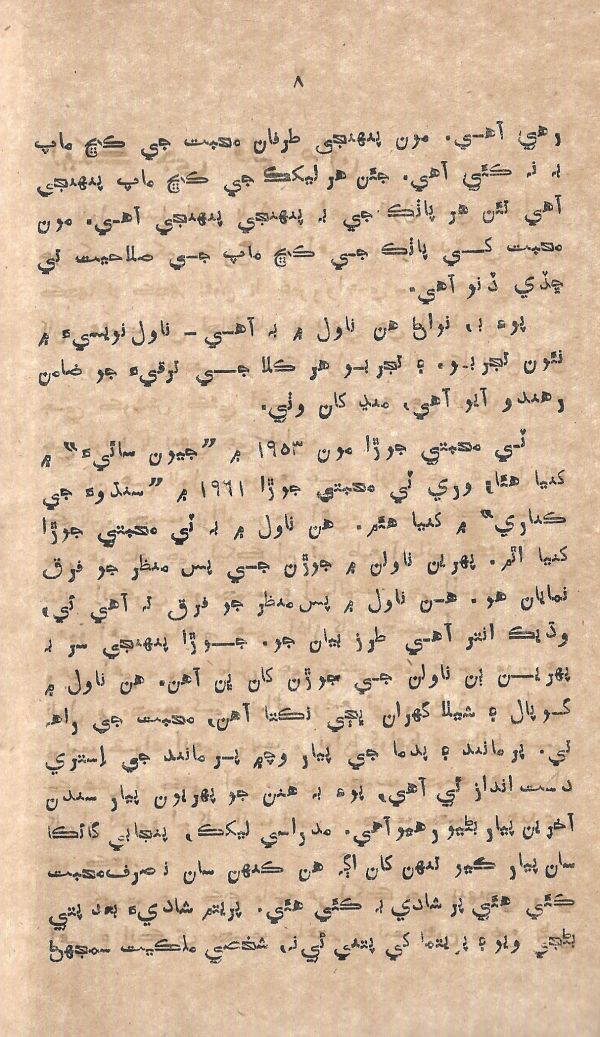 ۸
رهي آهي. مون پنهنجي طرفان محبت جي ڪڇ ماپ
بہ نہ ڪئي آهي. جئن هر ليکڪ جي ڪڇ ماپ پنهنجي
آهي تئن هر پاٺڪ جي بہ پنهنجي پنهنجي آهي. مون
محبت کي پاٺڪ جي ڪڇ ماپ جي صلاحيت تي
ڇڏي ڏنو آهي.
پوءِ بہ نواڻ هن ناول ۾ بہ آهي – ناول نويسيءَ ۾
نئون تجربو. ۽ تجربو هر ڪلا جي ترقيءَ جو ضامن
رهندو آيو آهي، منڍ کان وٺي.
ٽي محبتي جوڙا مون ۱۹۵۳ ۾ ”جيون ساٿيءَ“ ۾
کنيا هئا، وري ٽي محبتي جوڙا ۱۹٦۱ ۾ ”سنڌوءَ جي
ڪناري“ ۾ کنيا هئم. هن ناول ۾ بہ ٽي محبتي جوڙا
کنيا اٿم. پهرين ناولن ۾ جوڙن جي پس منظر جو فرق
نمايان هو. هن ناول ۾ پس منظر جو فرق تہ آهي ئي،
وڌيڪ انتر آهي طرز بيان جو. جوڙا پنهنجي سر بہ
پهرين ٻن ناولن جي جوڙن کان ٻن آهن. هن ناول ۾
گوپال ۽ شيلا گهران ڀڄي نڪتا آهن، محبت جي راهہ
تي. پرمانند ۽ پدما جي پيار وچ ۾ پرمانند جي اِستري
دست انداز ٿي آهي، پوءِ بہ هنن جو پهريون پيار سندن
آخرين پيار بڻيو رهيو آهي. مدراسي ليکڪ، پنجابي گائڪا
سان پيار ڪيو تنهن کان اڳہ هن ڪنهن سان نہ صرف محبت
ڪئي هئي پر شادي بہ ڪئي هئي. پريتم شاديءَ بعد پتي
بڻجي ويو ۽ پريتما کي پتني ئي نہ، شخصي ملڪيت سمجهڻ